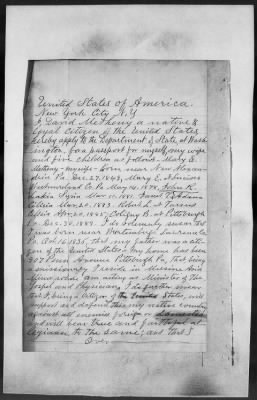 United States of America.
New York City N.Y.
I David Metheny a native &
loyal citizen of the United States
hereby apply to the Department of State, at Wash-
ington, for a passport for myself, my wife
and five children as follows. Mary E.
Metheny my wife born near New Alexan-
dria Pa. Dec. 27, 1843, Mary E. at
Westmoreland Co. Pa May 14, 1878, John K.
Syria Mar. 11. 1881.
Cilicia Mar. 20, 1883. Robert L. at Tarsus
Cilicia Apr. 20. 1885. Coligny B. at Pittsburgh
Pa. Dec. 30, 1887. I do solemnly swear that
I was born near Lawrence Co.
Pa. Oct. 16, 1836, that my father was a citi-
zen of the United States, My home has been
907 Penn Avenue Pittsburgh Pa, that being
a missionary I reside in Mersina Asia
Minor
Gospel and Physician, I do further swear
that I, being a Citizen of the United States, will
support and defend this, my native country
against all enemies foreign or domestic
and will bear true and faithful al-
legiance to the same; and that I
Over